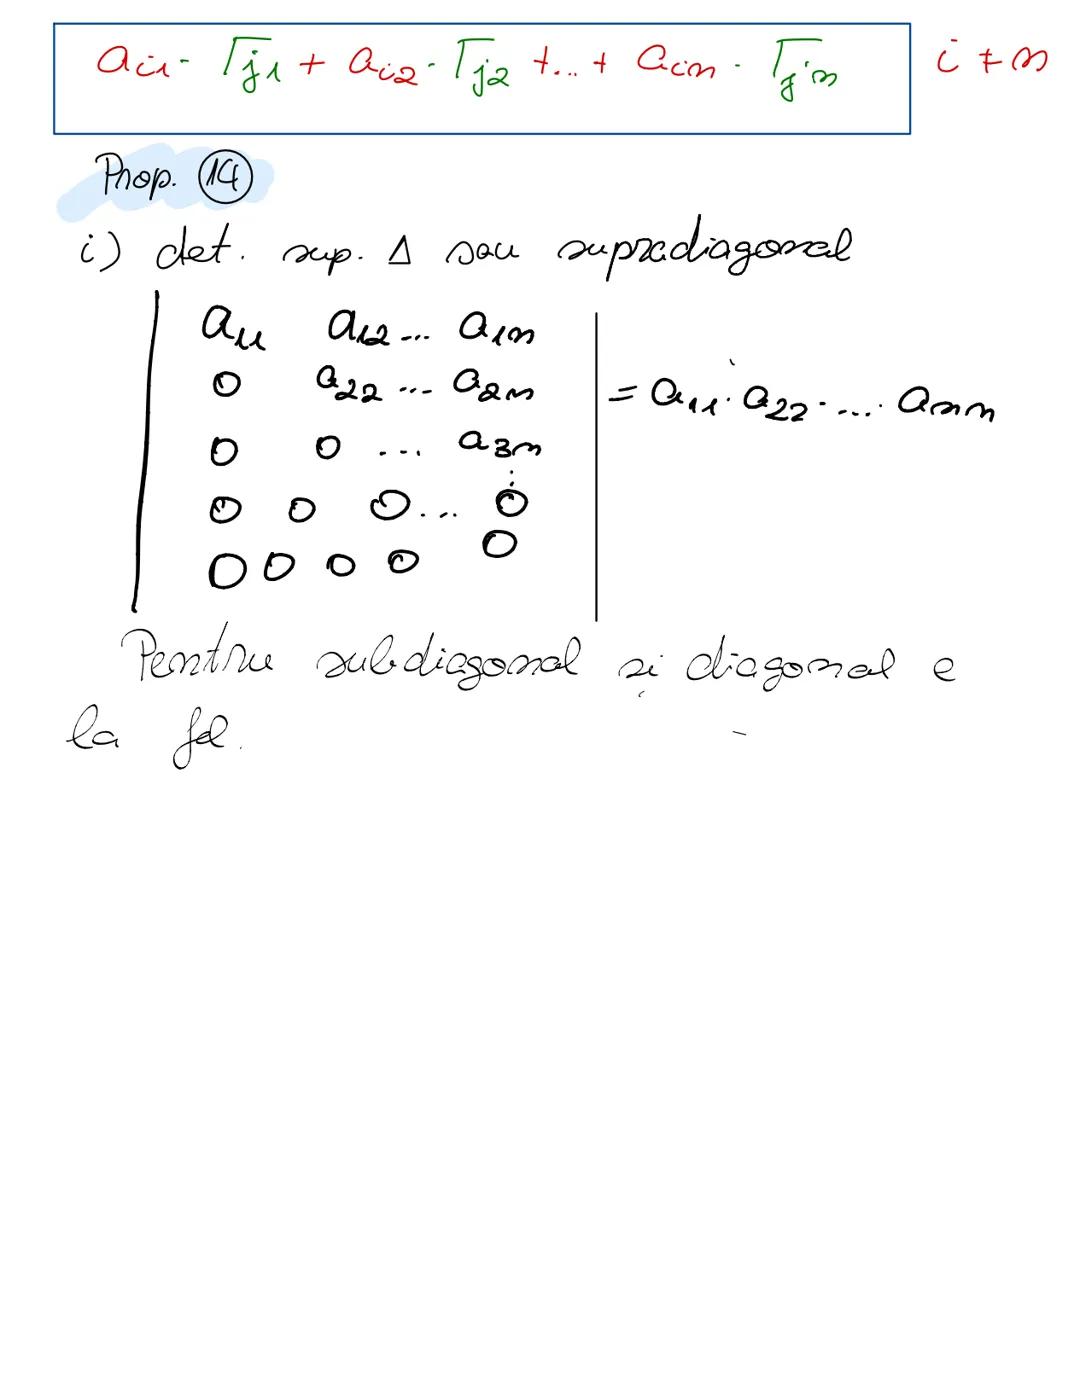 a_{i1} · Γ_{j1} + a_{i2} · Γ_{j2} + ... + a_{in} · Γ_{jn} i ≠ n
Prop. 14
i) det. sup. Δ sau supradiagonal
| a_{11} a_{12} ... a_{1n} |
| 0 a_{22} ... a_{2n} | = a_{11} · a_{22} · ... · a_{nn}
| 0 0 ... a_{3n} |
| 0 0 0 ... 0 |
| 0 0 0 0 0 |
Pentru subdiagonal și diagonal e
la fel.